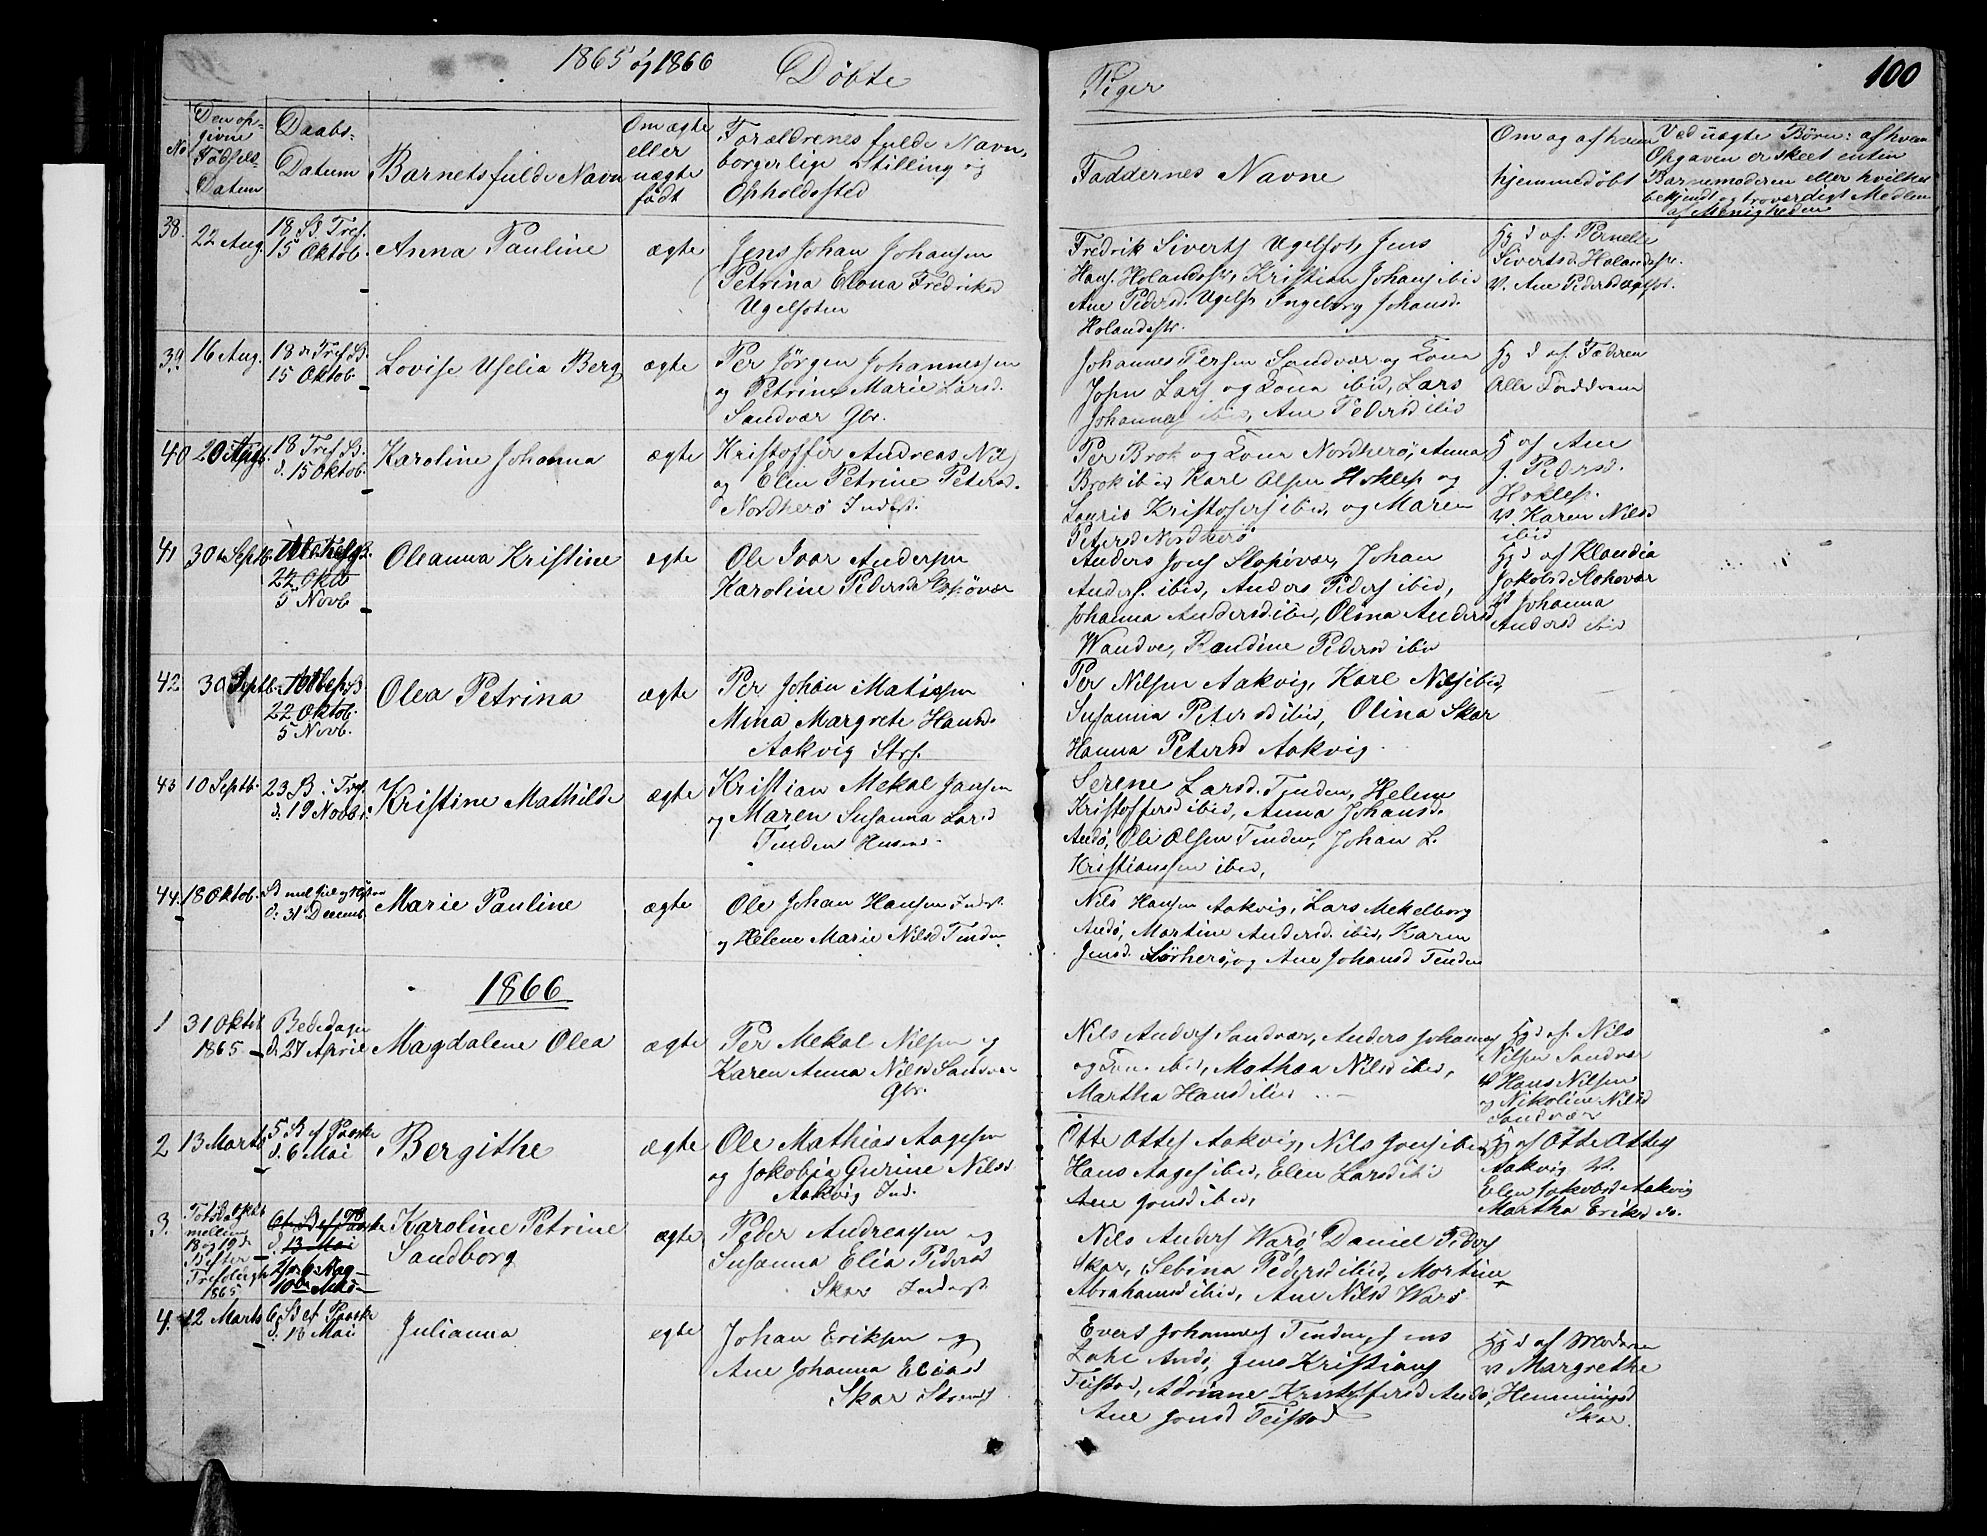 1865 og 1866 Döbte
Piger
100
No
Den op-
givne
Fødsels-
Datum
Daabs-
Datum
Barnets fulde Navn
Om ægte
eller
uægte
født
Forældrenes fulde Navn,
borgerlige Stilling og
Opholdssted
Faddernes Navne
Om og af hvem
hjemmedøbt
Ved uægte Børn: af hvem
Opgaven er skeet enten
Barnemoderen eller hvilket
bekjendt og troværdigt Medlem
af Menigheden
38. 22 Aug.
18 S. Tref.
15 Oktob.
Anna Pauline
ægte
Jens Johan Johansen
Petrina Elona Fredriksd
Ugelsoten
Fredrik Siverts Ugelsot, Jens
Hans. Holandsstr, Kristian Johans ibid
Ane Pedersd. Ugels Ingeborg Johansd.
Holandsstr.
Hj d af. Pernelle
Sivertsd. Holandsstr.
v. Ane Pedersd Ugelsot.
39. 16 Aug.
18 S. Tref.
15 Oktob
Lovise Uselia Berg
ægte
Per Jörgen Johannessen
og Petrine Marie Larsd.
Sandvær Gbr.
Johannes Persen Sandvær og Kona
John Lars og Kona ibid, Lars
Johannes ibid, Ane Pedersd ibid
Hj d af. Faderen
Alle Fadderne
40 20
18 Tref S.
d. 15 Oktob.
Karoline Johanna
ægte
Kristoffer Andreas Nils
og Elen Petrine Petersd.
Nordherö Indst.
Per Brok og Kona Nordherö, Anna
Brok ibid Karl Olsen Hoklep og
Lauris Kristofers ibid, og Maren
Petersd Nordherö
H af Ane
J. Pedersd.
Hoklep.
v. Karen Nilsd
ibid
41 30 Septb.
22 Okto
5 Novb
Oleanna Kristine
egte
Ole Ivar Andersen
Karoline Pedersd Slopövær
Anders Jons Slopövær, Johan
Anders. ibid, Anders Peders ibid,
Johanna Andersd ibid, Olina Andersd
Wandve, Randine Pedersd ibid
Hj d af Klandia
Jakobsd Slopövær
v Johanna
Andersd ibid
42 30 Septb.
22 Oktob.
5 Novb.
Olea Petrina
ægte
Per Johan Matissen
Mina Margrete Hansd.
Aakvig Strs.
Per Nilsen Aakvig, Karl Nils ibid,
Susanna Petersd ibid, Olina Skar
Hanna Petersd Aakvig.
43 10 Septb.
23 S. i Tref
d. 19 Novbr.
Kristine Mathilde
ægte
Kristian Mekal Jansen
og Maren Susanna Larsd
Tinden Husmd.
Serene Larsd. Tinden, Helene
Kristoffersd ibid, Anna Johansd.
Andö, Ole Olsen Tinden, Johan L.
Kristianssen ibid,
44. 18 Oktob.
S mel Jul og Nytaar
d. 31 Decemb
Marie Pauline
ægte
Ole Johan Hansen Indst.
og Helene Marie Nilsd Tinden
Nils Hansen Aakvig, Lars Mekelborg
Andö, Martine Andersd. ibid, Karen
Jensd. Sörherö, og Ane Johansd Tinden
1866
1 31 Oktob
1865
Bededagen
d. 27 April
Magdalene Olea
ægte
Per Mekal Nilsen og
Karen Anna Nilsd Sandvær
Gbr.
Nils Anders Sandvær, Anders Johannes
og Kone ibid, Mathea Nilsd ibid,
Martha Hansd ibid
Hj d af. Nils
Nilsen Sandvær
v Hans Nilsen
og Nikoline Nilsd
Sandvær
2 13 Marts
5 S. ef Paaske
d. 6 Mai
Bergithe
ægte
Ole Mathias Aagesen
og Jokobia Gurine Nilsd
Aakvig Ind.
Otte Ottes Aakvig, Nils Jens ibid
Hans Aages ibid, Elen Larsd ibid
Ane Jonsd ibid,
Hj af Otte Ottes
Aakvig v.
Elen Jakobsd Aakvig
Martha Eriksd do.
3.
mellem
18 og 19 d.
1865
d. 13 Mai
Karoline Petrine
Sandborg
ægte
Peder Andreassen og
Susanna Elia Pedersd
Skar Inderst
Nils Anders Warö Daniel Peders
Skar, Sebina Pedersd ibid, Martine
Abrahamsd ibid, Ane Nilsd Warö
4. 12 Marts
6 S ef Paaske
d. 13 Mai
Julianna
egte
Johan Eriksen og
Ane Johanna Eliasd
Skar Strands
Evert Johannes Tinden, Jens
Zahl Andö, Jens Kristians
Teistad, Adriane Kristoffersd Andö,
Ane Jonsd Teistad
Hj d af Moderen
v Margrethe
Hemmingsd
Skar.